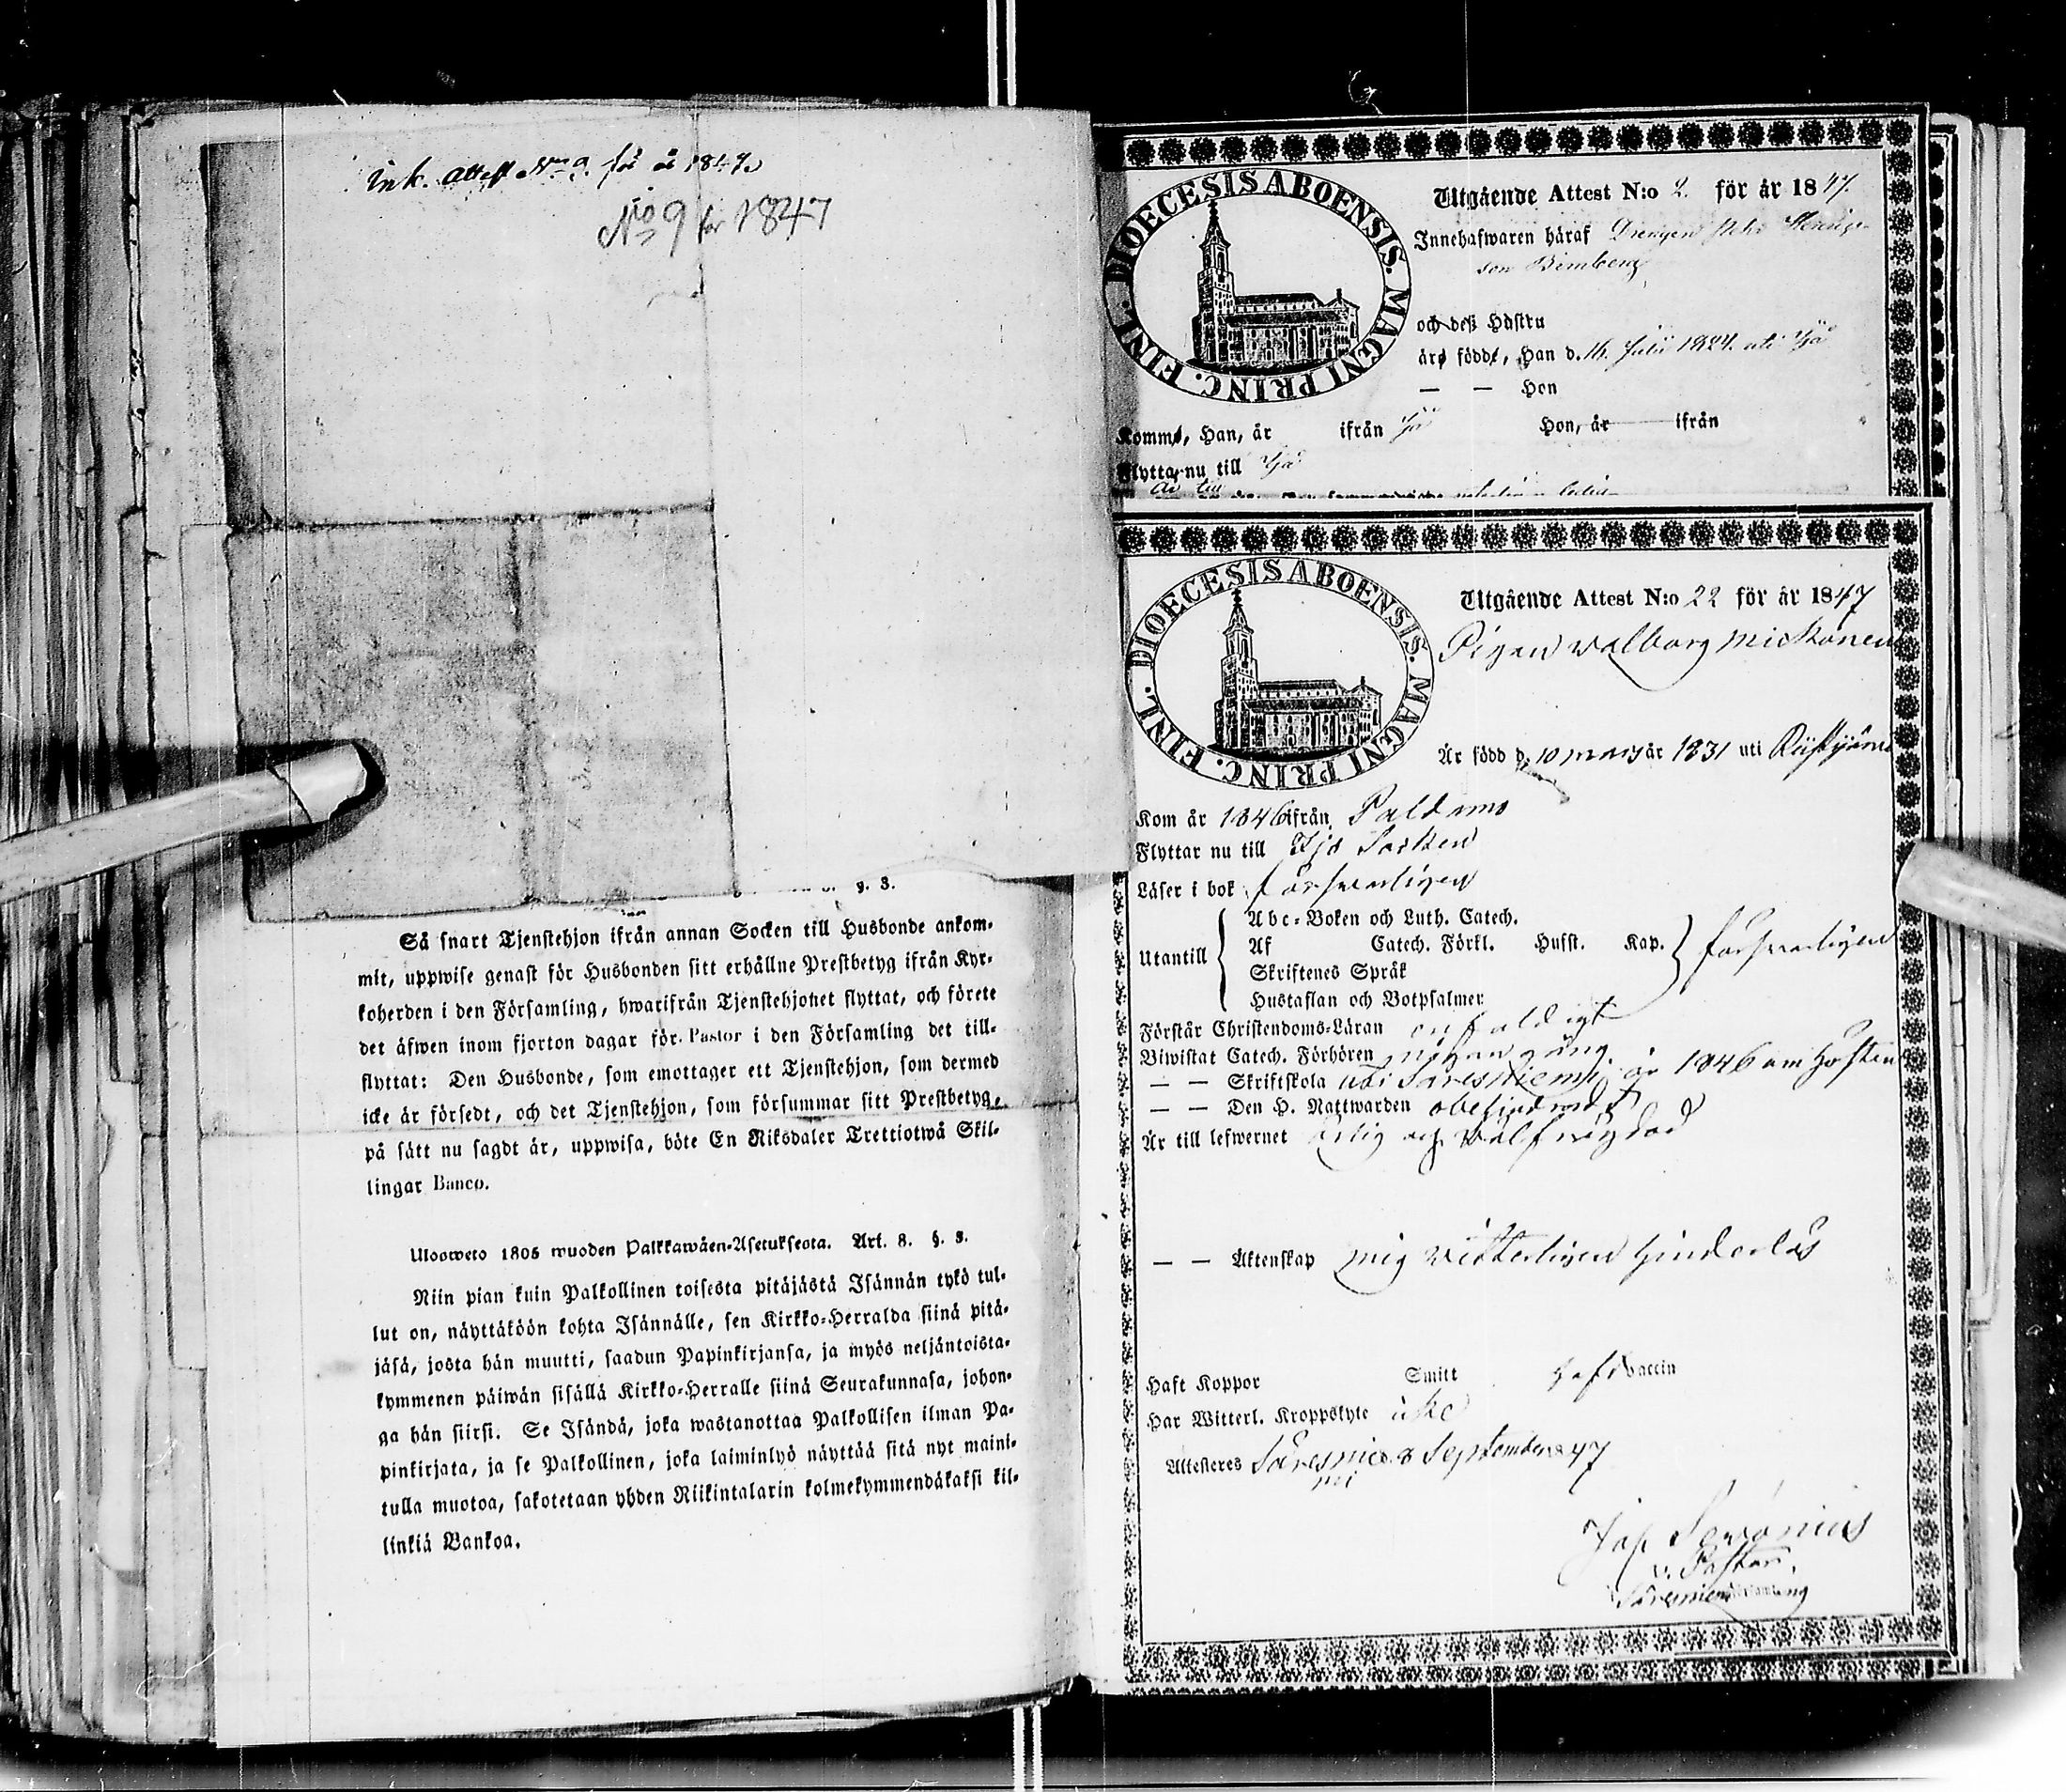 Ink. Attest N:o 9. för år 1847.
No 9 för 1847
§. 3.
Så snart Tjenstehjon ifrån annan Socken till Husbonde ankom-
mit, uppwise genast för Husbonden sitt erhållne Prestbetyg ifrån Kyr-
koherden i den Församling, hwarifrån Tjenstehjonet flyttat, och förete
det äfwen inom fjorton dagar för Pastor i den Församling det till-
flyttat: Den Husbonde, som emottager ett Tjenstehjon, som dermed
icke är försedt, och det Tjenstehjon, som försummar sitt Prestbetyg,
på sätt nu sagdt är, uppwisa, böte En Riksdaler Trettiotwå Skil-
lingar Banco.
Ulosweto 1805 wuoden Palkkawäen-Asetuksesta. Art. 8. §. 3.
Niin pian kuin Palkollinen toisesta pitäjästä Isännän tykö tul-
lut on, näyttäköön kohta Isännälle, sen Kirkko-Herralda siinä pitä-
jäsä, josta hän muutti, saadun Papinkirjansa, ja myös neljäntoista-
kymmenen päiwän sisällä Kirkko-Herralle siinä Seurakunnasa, johon-
ga hän siirsi. Se Isändä, joka wastanottaa Palkollisen ilman Pa-
pinkirjata, ja se Palkollinen, joka laiminlyö näyttää sitä nyt maini-
tulla muotoa, sakotetaan yhden Riikintalarin kolmekymmendäkaksi kil-
linkiä Bankoa.
DIOECESIS ABOENSIS. MAGNI PRINC. FINL.
Utgående Attest N:o 2. för år 1847.
Innehafwaren häraf Drengen
son Bimberg
och deß Hustru
äro födde, Han d. 16. Julii 1824. uti Ijo
— — Hon
Komme, Han, år ifrån Ijo Hon, år ifrån
Flytta nu till Ijo
DIOECESIS ABOENSIS. MAGNI PRINC. FINL.
Utgående Attest N:o 22 för år 1847
Pigan Walborg Mickonen
Är född d. 10 mars år 1831 uti
Kom år 1846 ifrån Paldamo
Flyttar nu till Ijo Socken
Läser i bok försvarligen
Utantill
Abc-Boken och Luth. Catech.
Af Catech. Förkl. Hufst. Kap. försvarligen
Skriftenes Språk
Hustaflan och Botpsalmer
Förstår Christendoms-Läran enfaldigt
Biwistat Catech. Förhören någon gång
— — Skriftskola uti Säresniemi år 1846 om hösten
— — Den H. Nattwarden obehindradt
Är till lefwernet ärlig och wälfrägdad
— — Äktenskap mig vitterligen hinderlös
Haft Koppor Smitt haft Vaccin
Har Witterl. Kroppslyte icke
Attesteres Säresnie d. 8 September 1847
mi
v. Pastor.